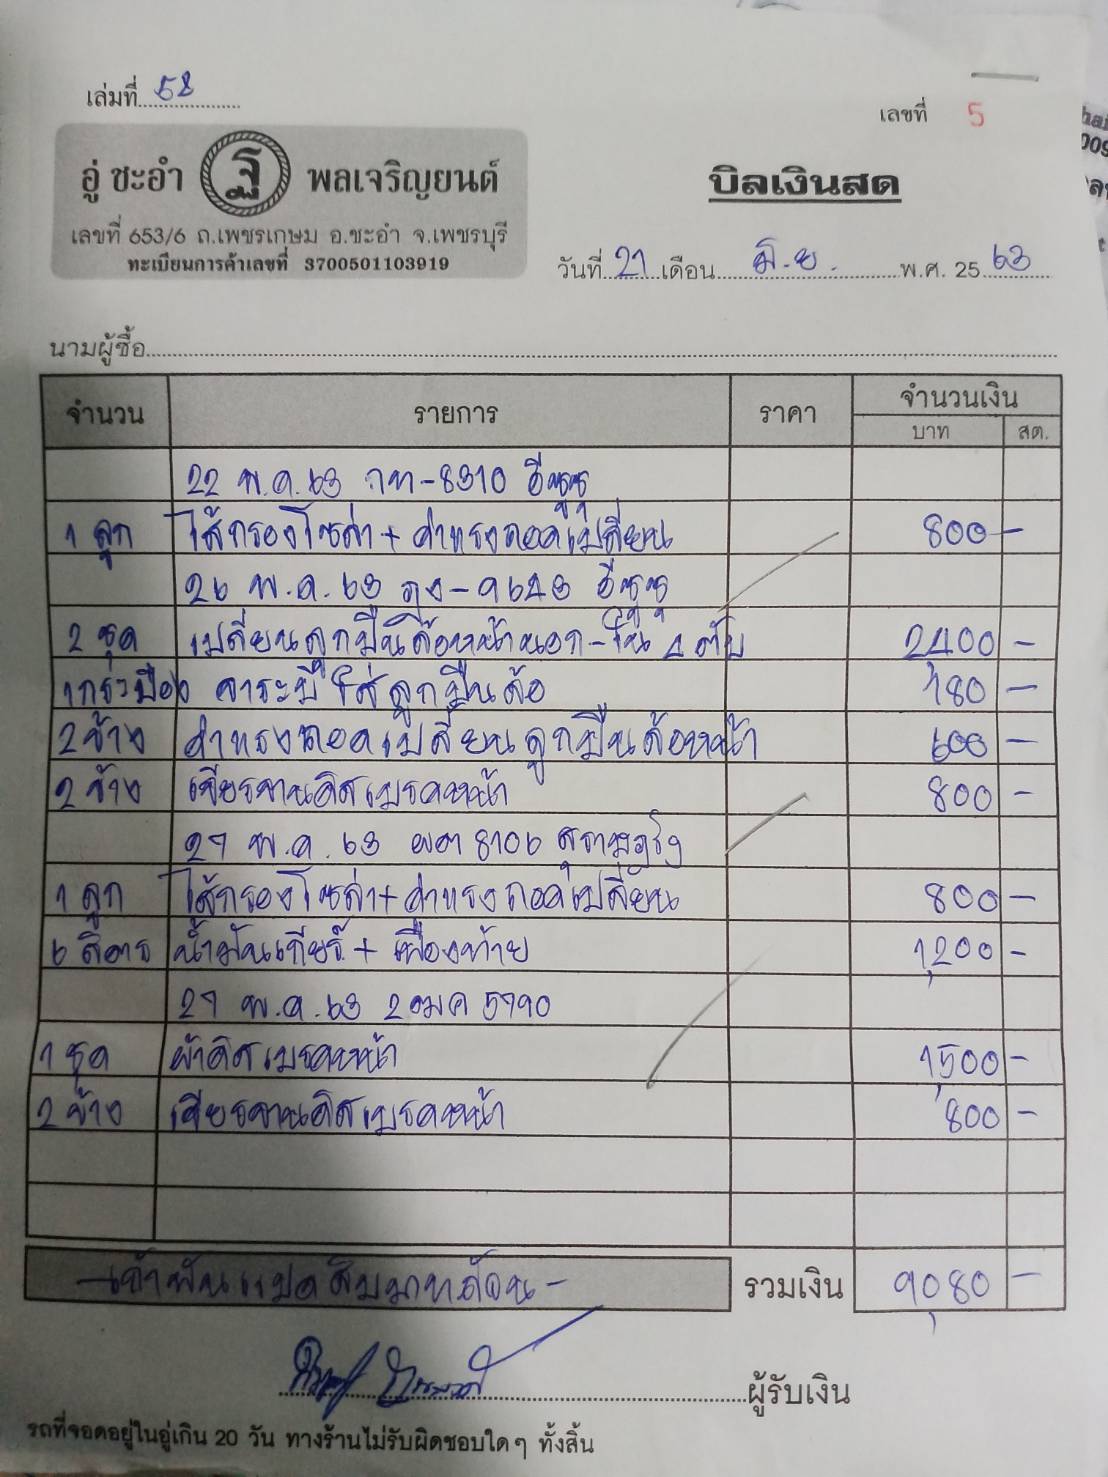 เล่มที่ 58
เลขที่ 5
อู่ ชะอำ ฐ พลเจริญยนต์
บิลเงินสด
เลขที่ 653/6 ถ.เพชรเกษม อ.ชะอำ จ.เพชรบุรี
ทะเบียนการค้าเลขที่ 3700501103919
วันที่ 21 เดือน มิ.ย. พ.ศ. 25 63
นามผู้ซื้อ
จำนวน รายการ ราคา จำนวนเงิน
บาท สต.
22 พ.ค. 63 กท-8310 อีซูซุ
1 ลูก ไส้กรองโซล่า + ค่าแรงถอดเปลี่ยน 800 -
26 พ.ค. 63 อีซูซุ
2 ชุด เปลี่ยนลูกปืนล้อหน้านอก-ใน 4 ตับ 2,400 -
1 กระป๋อง จาระบี ใส่ลูกปืนล้อ 180 -
2 ข้าง ค่าแรงถอดเปลี่ยนลูกปืนล้อหน้า 600 -
2 ข้าง เจียรจานดิสเบรคหน้า 800 -
27 พ.ค. 63 ผต 8106
1 ลูก ไส้กรองโซล่า + ค่าแรงถอดเปลี่ยน 800 -
6 ลิตร น้ำมันเกียร์ + เฟืองท้าย 1,200 -
27 พ.ค. 63 2ฒค 5790
1 ชุด ผ้าดิสเบรคหน้า 1,500 -
2 ข้าง เจียรจานดิสเบรคหน้า 800 -
-เก้าพันแปดสิบบาทถ้วน- รวมเงิน 9,080 -
ผู้รับเงิน
รถที่จอดอยู่ในอู่เกิน 20 วัน ทางร้านไม่รับผิดชอบใดๆ ทั้งสิ้น